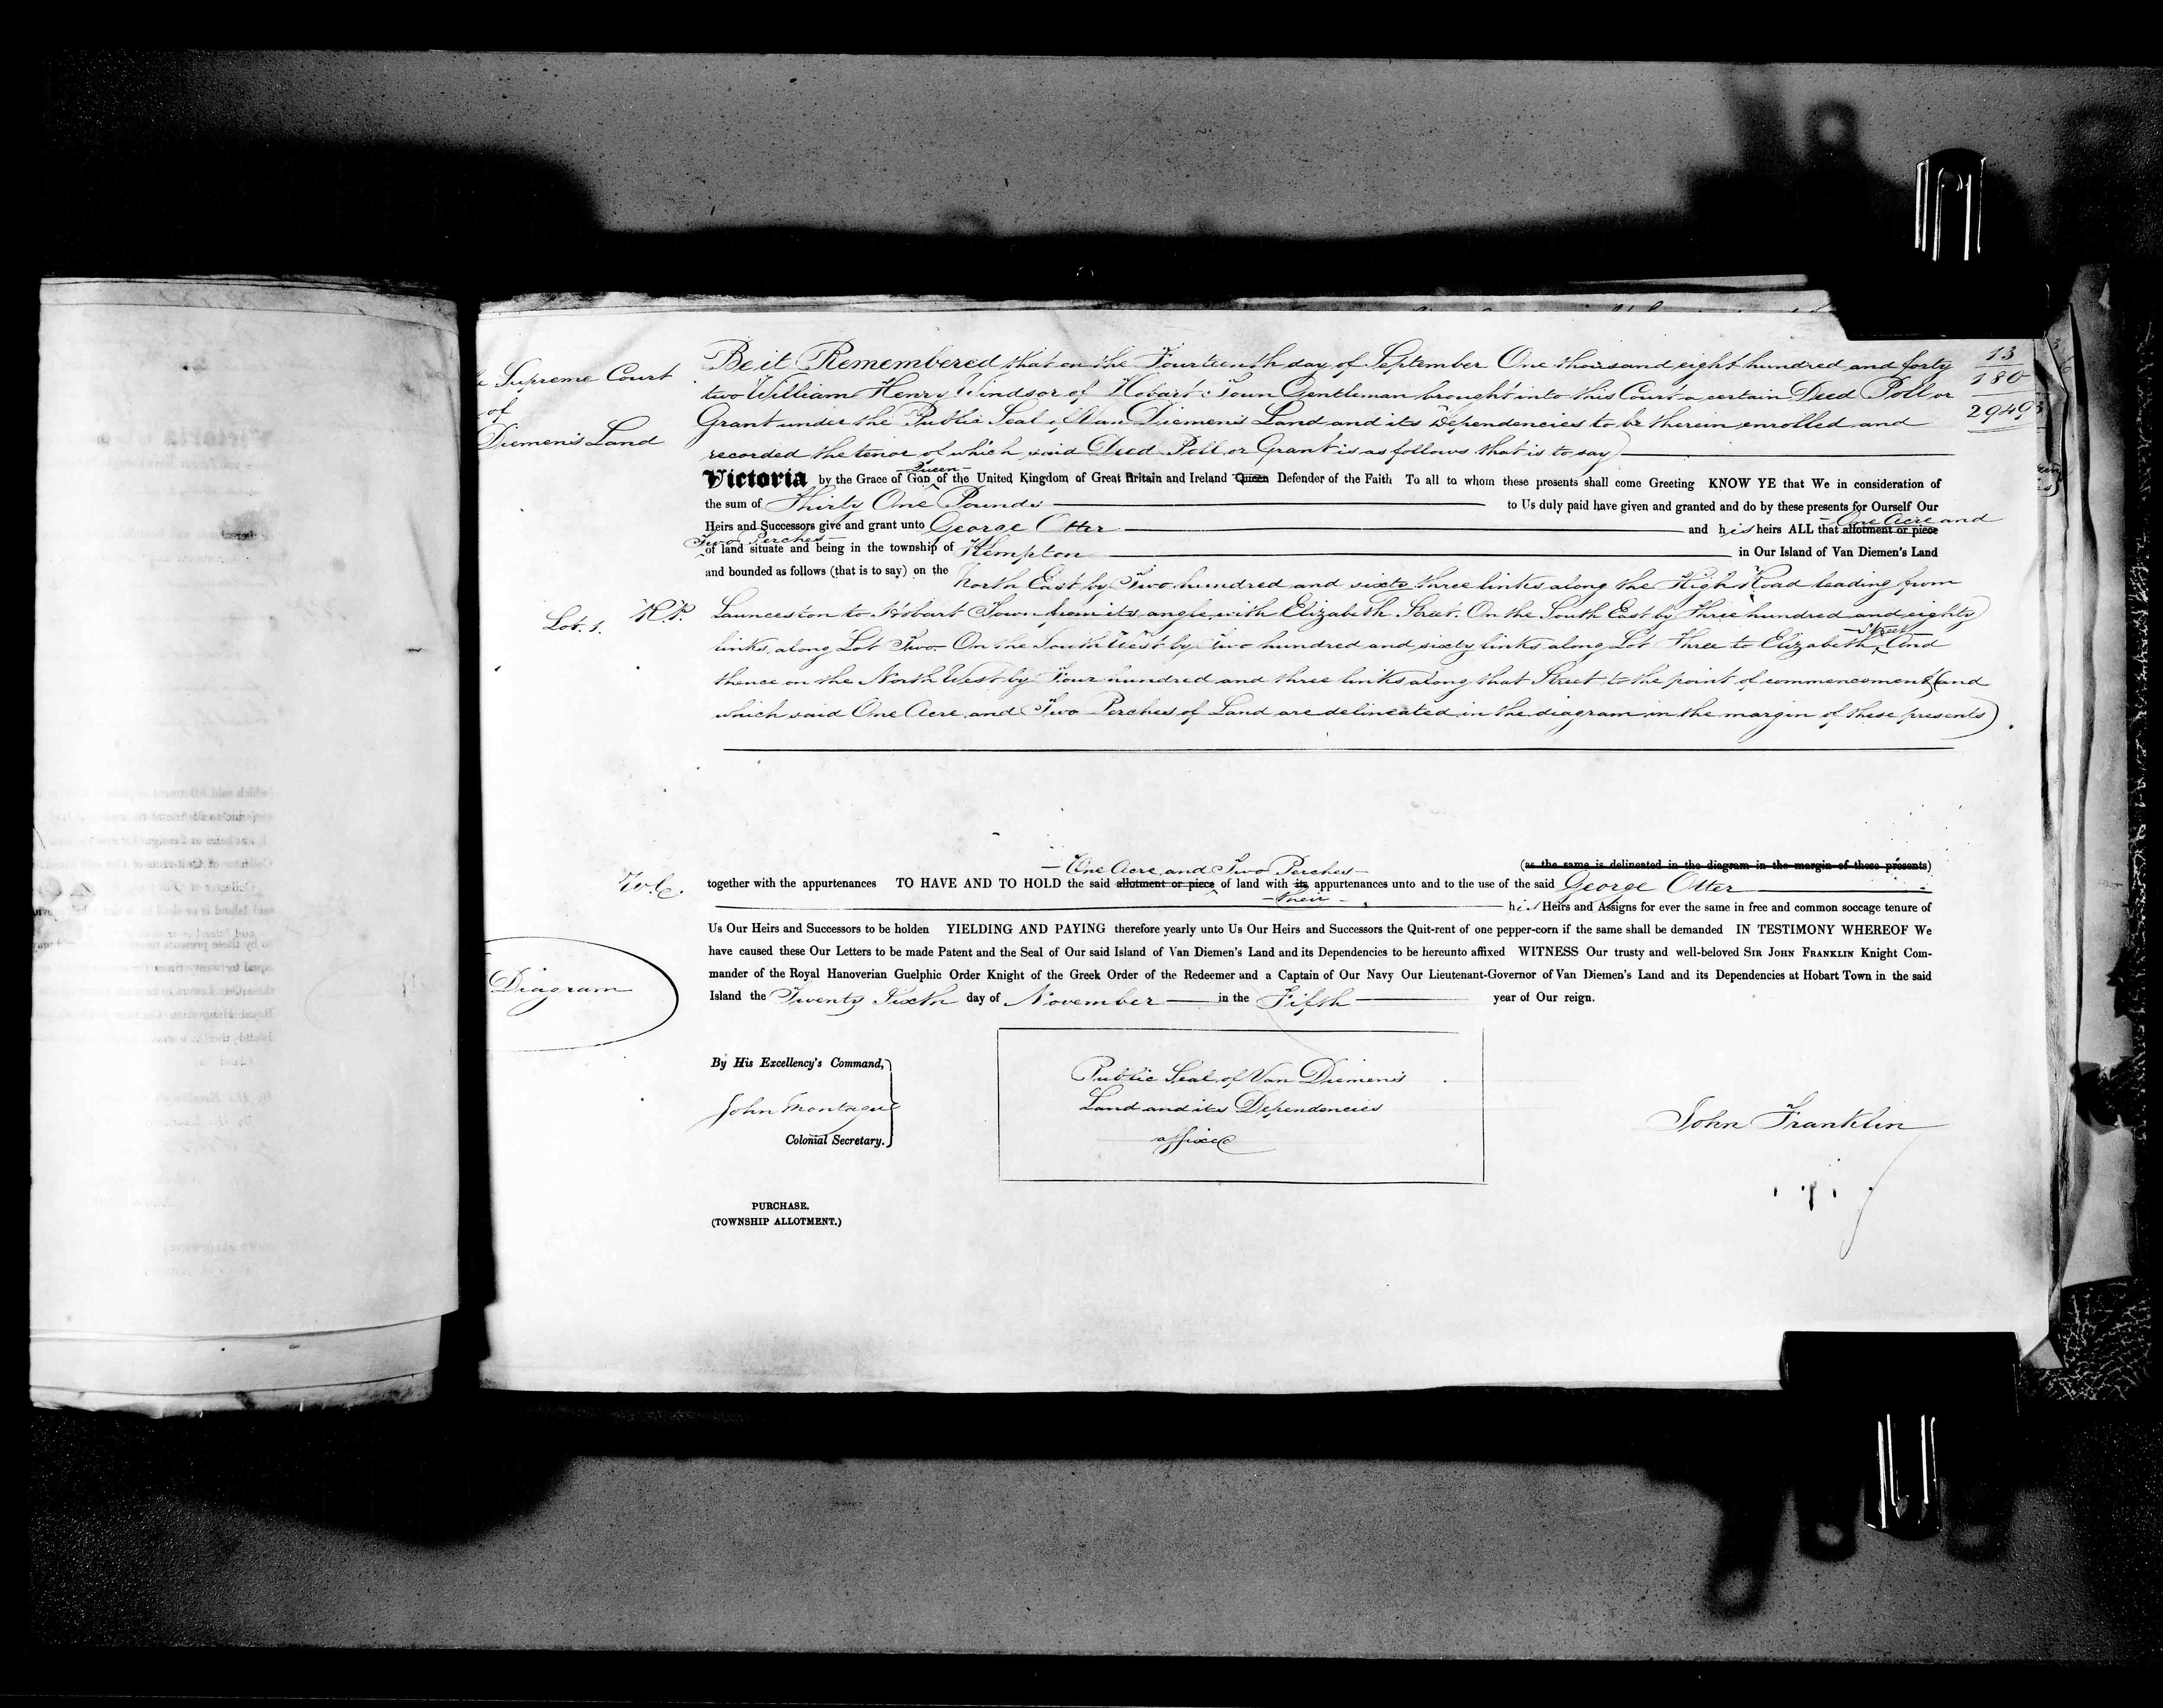 Supreme Court
of
Diemen's Land
Be it Remembered that on the Fourteenth day of September One thousand eight hundred and forty
two William Henry Windsor of Hobart Town Gentleman brought into this Court a certain Deed Poll or
Grant under the Public Seal of Van Diemen's Land and its Dependencies to be therein enrolled and
recorded the tenor of which said Deed Poll or Grant is as follows that is to say)
13
180
2949
Queen
Victoria by the Grace of God of the United Kingdom of Great Britain and Ireland Queen Defender of the Faith To all to whom these presents shall come Greeting KNOW YE that We in consideration of
the sum of Thirty One Pounds to Us duly paid have given and granted and do by these presents for Ourself Our
One Acre and
Heirs and Successors give and grant unto George Otter and his heirs ALL that allotment or piece
Two Perches
of land situate and being in the township of Kempton in Our Island of Van Diemen's Land
and bounded as follows (that is to say) on the North East by Two hundred and sixty three links along the High Road leading from
Lot. 1. Launceston to Hobart Town from its angle with Elizabeth Street. On the South East by Three hundred and eighty
Street
links along Lot Two. On the South West by Two hundred and sixty links along Lot Three to Elizabeth And
thence on the North West by Four hundred and three links along that Street to the point of commencement (and
which said One Acre and Two Perches of Land are delineated in the diagram in the margin of these presents)
One Acre and Two Perches
(as the same is delineated in the diagram in the margin of these presents)
together with the appurtenances TO HAVE AND TO HOLD the said allotment or piece of land with its appurtenances unto and to the use of the said George Otter
their
his Heirs and Assigns for ever the same in free and common soccage tenure of
Us Our Heirs and Successors to be holden YIELDING AND PAYING therefore yearly unto Us Our Heirs and Successors the Quit-rent of one pepper-corn if the same shall be demanded IN TESTIMONY WHEREOF We
have caused these Our Letters to be made Patent and the Seal of Our said Island of Van Diemen's Land and its Dependencies to be hereunto affixed WITNESS Our trusty and well-beloved SIR JOHN FRANKLIN Knight Com-
mander of the Royal Hanoverian Guelphic Order Knight of the Greek Order of the Redeemer and a Captain of Our Navy Our Lieutenant-Governor of Van Diemen's Land and its Dependencies at Hobart Town in the said
Island the Twenty Sixth day of November in the Fifth year of Our reign.
Diagram
By His Excellency's Command,
John Montagu
Colonial Secretary.
Public Seal of Van Diemen's
Land and its Dependencies
affixed
John Franklin
PURCHASE.
(TOWNSHIP ALLOTMENT.)